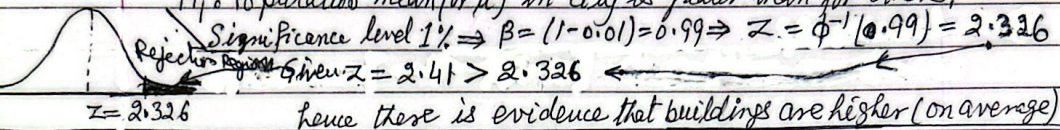 Significance level 1% ⇒ β = (1-0.01) = 0.99 ⇒ Z = ϕ⁻¹(0.99) = 2.326
Rejection Region Given Z = 2.41 > 2.326
Z = 2.326 hence there is evidence that buildings are higher (on average)